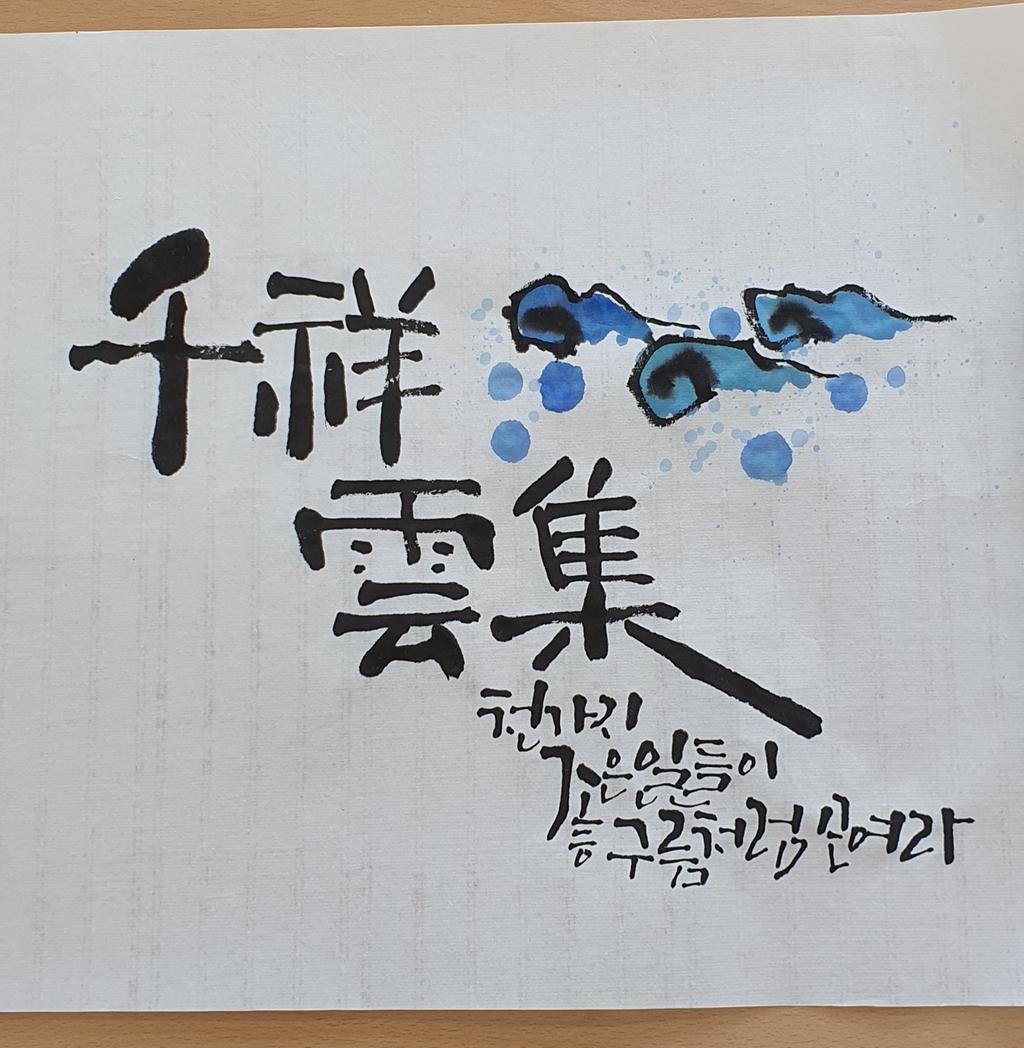 千祥
雲集
천가지
좋은일들이
구름처럼모여라